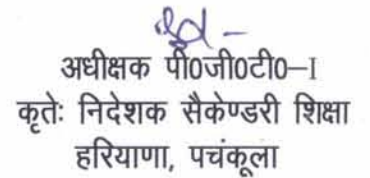 अधीक्षक पी0जी0टी0–I
कृतेः निदेशक सैकेण्डरी शिक्षा
हरियाणा, पचंकूला